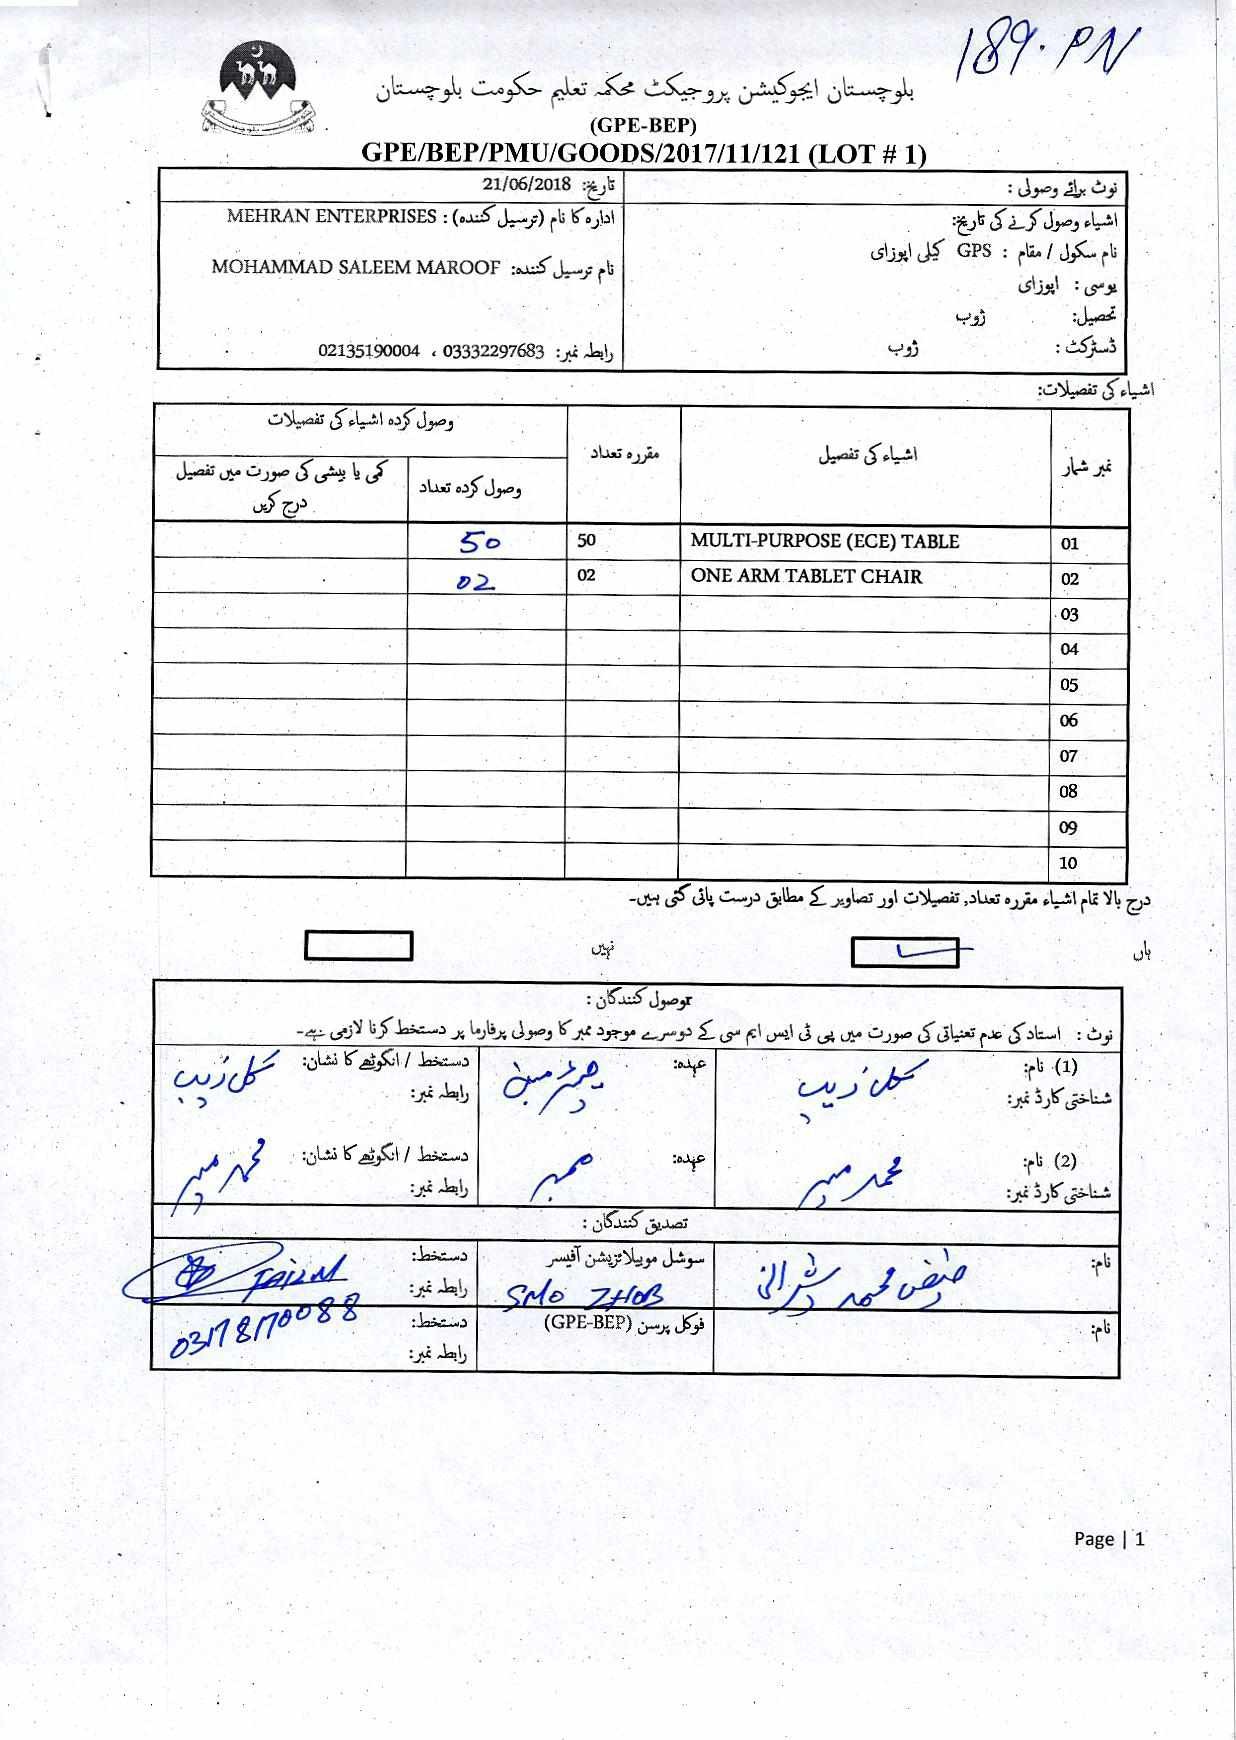 189.PN
بلوچستان ایجوکیشن پروجیکٹ محکمہ تعلیم حکومت بلوچستان
(GPE-BEP)
GPE/BEP/PMU/GOODS/2017/11/121 (LOT # 1)
نوٹ برائے وصولی :
تاریخ: 21/06/2018
اشیاء وصول کرنے کی تاریخ:
نام سکول / مقام : GPS کیلی اپوزای
یوسی : اپوزای
تحصیل: ژوب
ڈسٹرکٹ : ژوب
ادارہ کا نام (ترسیل کنندہ) : MEHRAN ENTERPRISES
نام ترسیل کنندہ: MOHAMMAD SALEEM MAROOF
رابطہ نمبر: 03332297683 ، 02135190004
اشیاء کی تفصیلات:
نمبر شمار اشیاء کی تفصیل مقررہ تعداد وصول کردہ اشیاء کی تفصیلات
وصول کردہ تعداد کمی یا بیشی کی صورت میں تفصیل
درج کریں
01 MULTI-PURPOSE (ECE) TABLE 50 50
02 ONE ARM TABLET CHAIR 02 02
03
04
05
06
07
08
09
10
درج بالا تمام اشیاء مقررہ تعداد, تفصیلات اور تصاویر کے مطابق درست پائی گئی ہیں۔
ہاں نہیں
وصول کنندگان :
نوٹ : استاد کی عدم تعنیاتی کی صورت میں پی ٹی ایس ایم سی کے دوسرے موجود ممبر کا وصولی پرفارما پر دستخط کرنا لازمی ہے۔
(1) نام: گل زیب عہدہ: چیئرمین دستخط / انگوٹھے کا نشان: گل زیب
شناختی کارڈ نمبر: رابطہ نمبر:
(2) نام: محمد عہدہ: ممبر دستخط / انگوٹھے کا نشان: محمد
شناختی کارڈ نمبر: رابطہ نمبر:
تصدیق کنندگان :
نام: محمد شیرانی سوشل موبیلائزیشن آفیسر دستخط:
SMO ZHOB رابطہ نمبر:
نام: فوکل پرسن (GPE-BEP) دستخط: 03178170088
رابطہ نمبر:
Page | 1